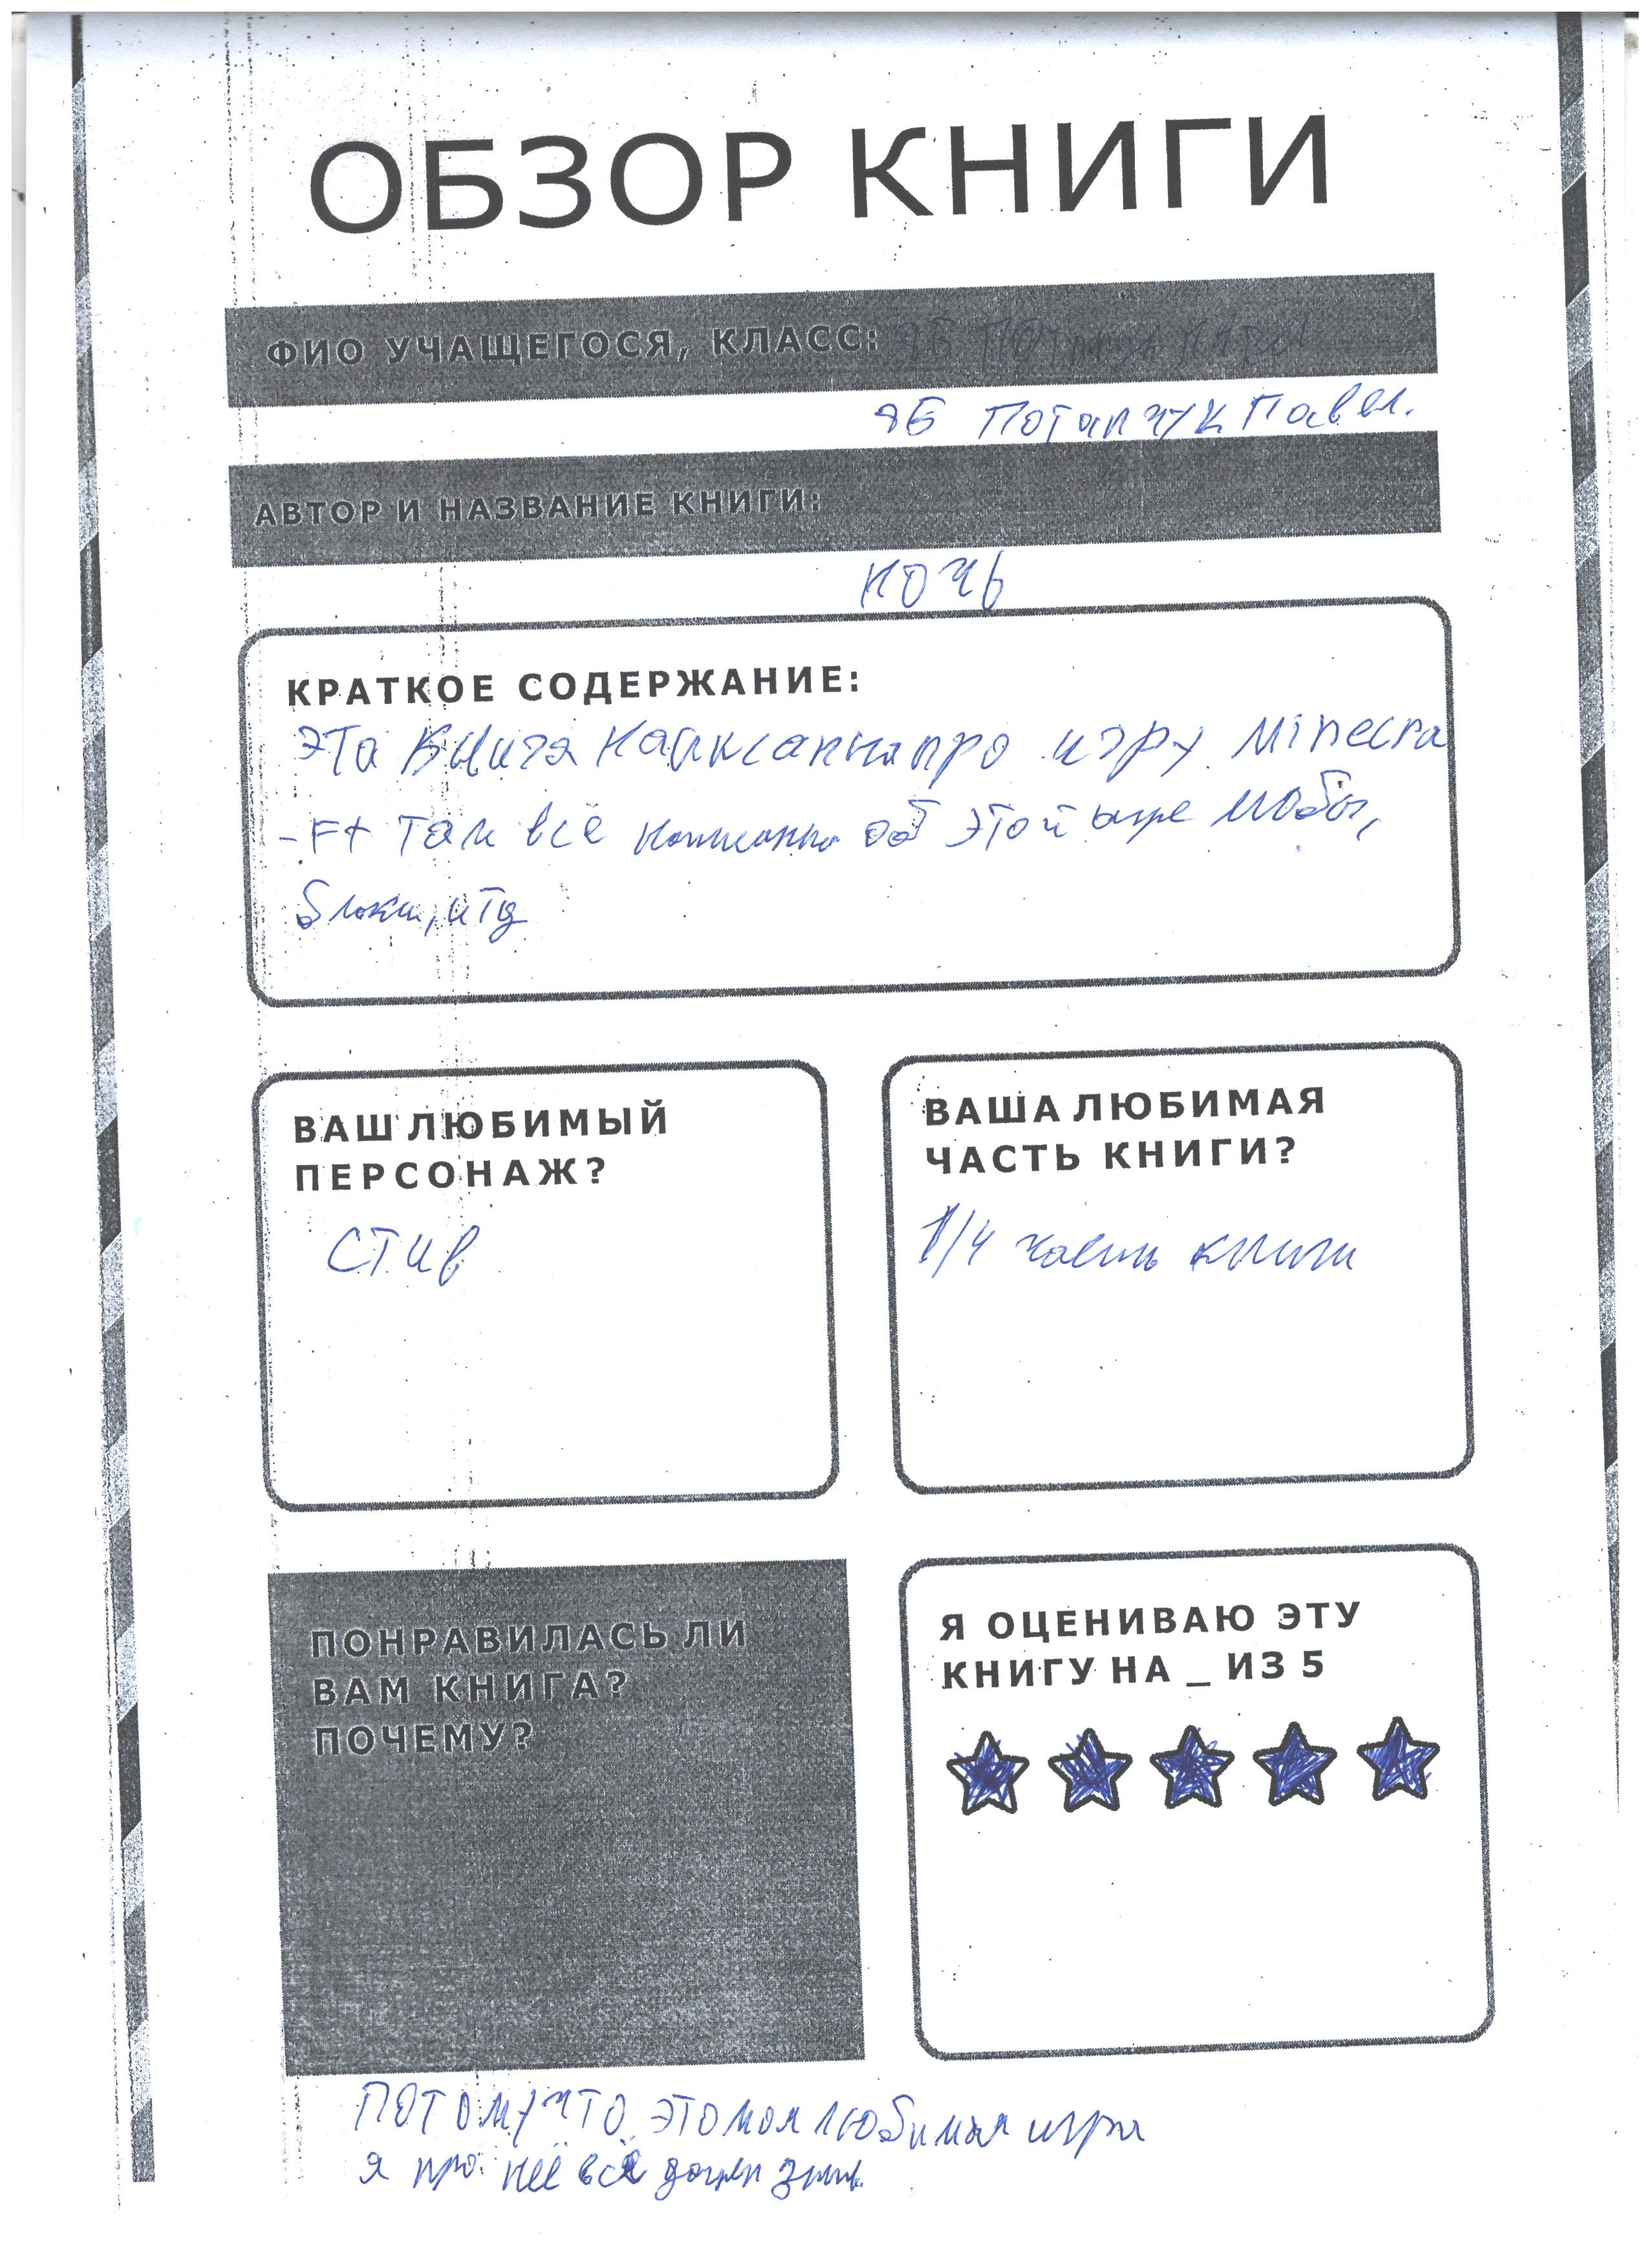 ОБЗОР КНИГИ
ФИО УЧАЩЕГОСЯ, КЛАСС:
Потапчук Павел.
АВТОР И НАЗВАНИЕ КНИГИ:
ночь
КРАТКОЕ СОДЕРЖАНИЕ:
Эта про игру Minecra
-Ft Там всё об этой игре мобы,
блоки, итд
ВАШ ЛЮБИМЫЙ
ПЕРСОНАЖ?
Стив
ВАША ЛЮБИМАЯ
ЧАСТЬ КНИГИ?
1/4 часть книги
ПОНРАВИЛАСЬ ЛИ
ВАМ КНИГА?
ПОЧЕМУ?
Я ОЦЕНИВАЮ ЭТУ
КНИГУ НА _ ИЗ 5
Потому что это моя любимая игра
я про неё всё должен